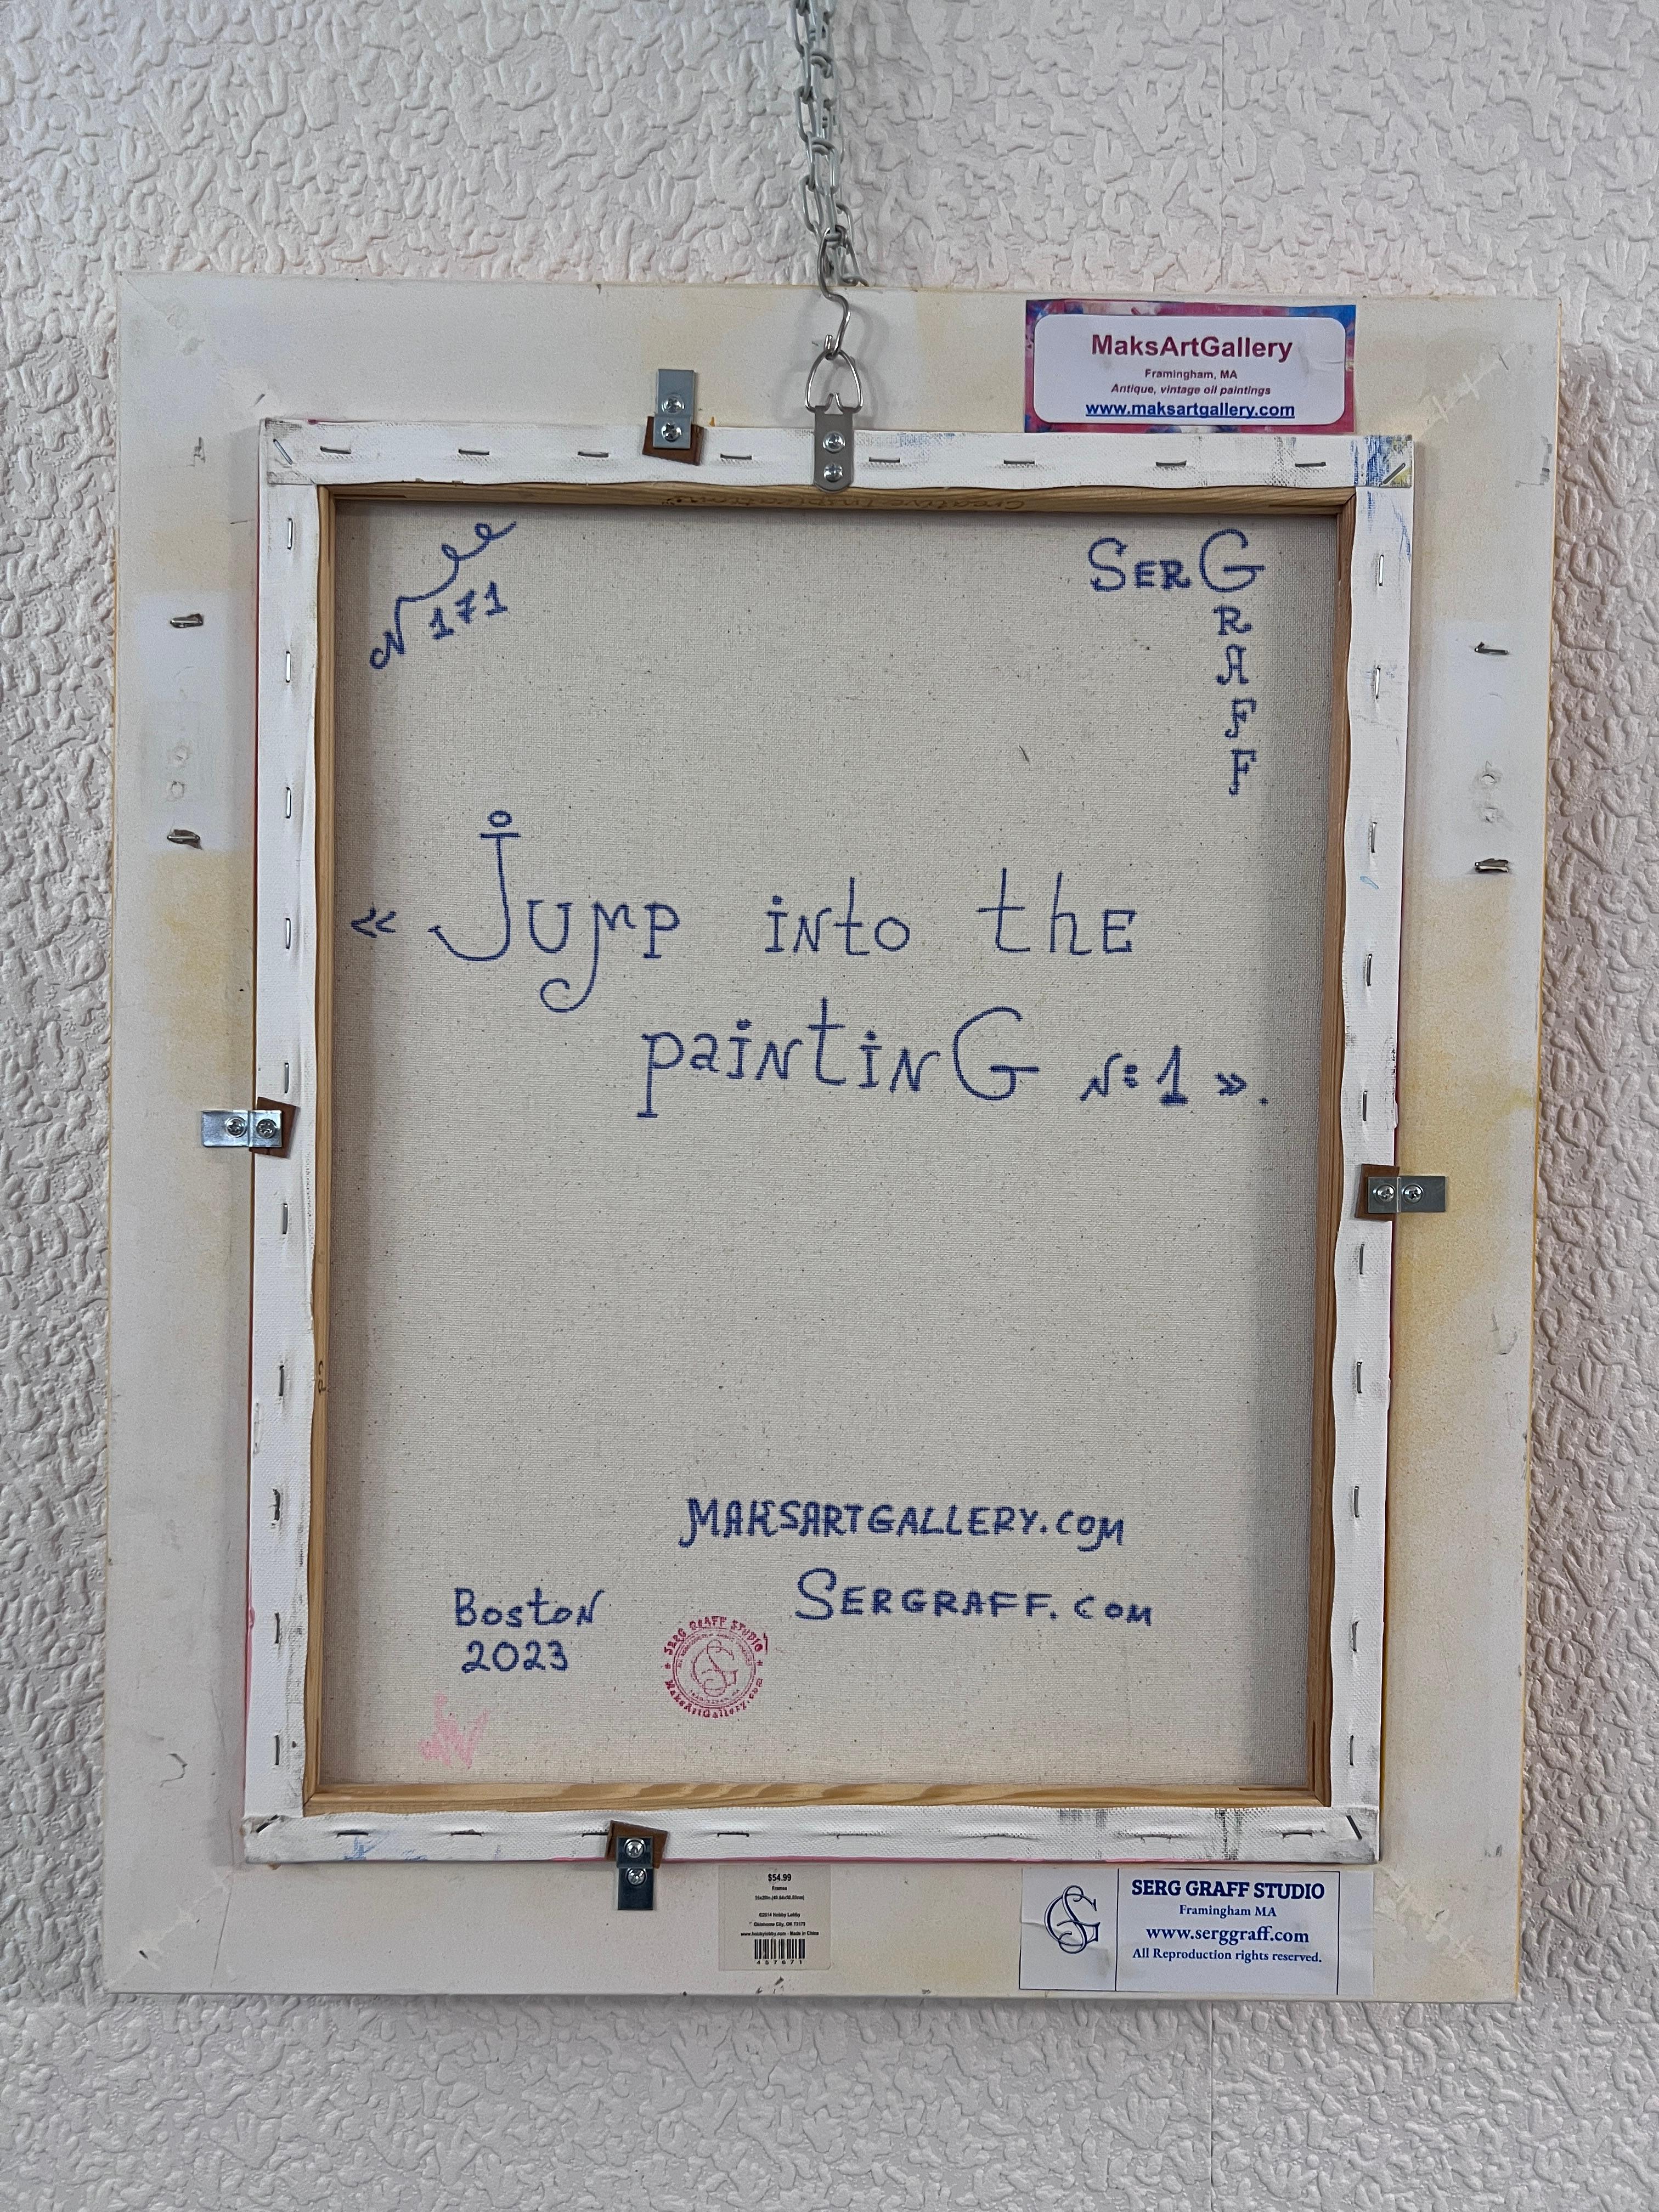 MaksArtGallery
Framingham, MA
Antique, vintage oil paintings
www.maksartgallery.com
N 171
SERG
R
A
F
F
« Jump into the
painting №1 ».
MAKSARTGALLERY.COM
SERGRAFF.COM
Boston
2023
SERG GRAFF STUDIO
MaksArtGallery.com
$54.99
Frames
16x20in (40.64x50.80cm)
©2014 Hobby Lobby
Oklahoma City, OK 73179
www.hobbylobby.com - Made in China
457671
SG
SERG GRAFF STUDIO
Framingham MA
www.serggraff.com
All Reproduction rights reserved.